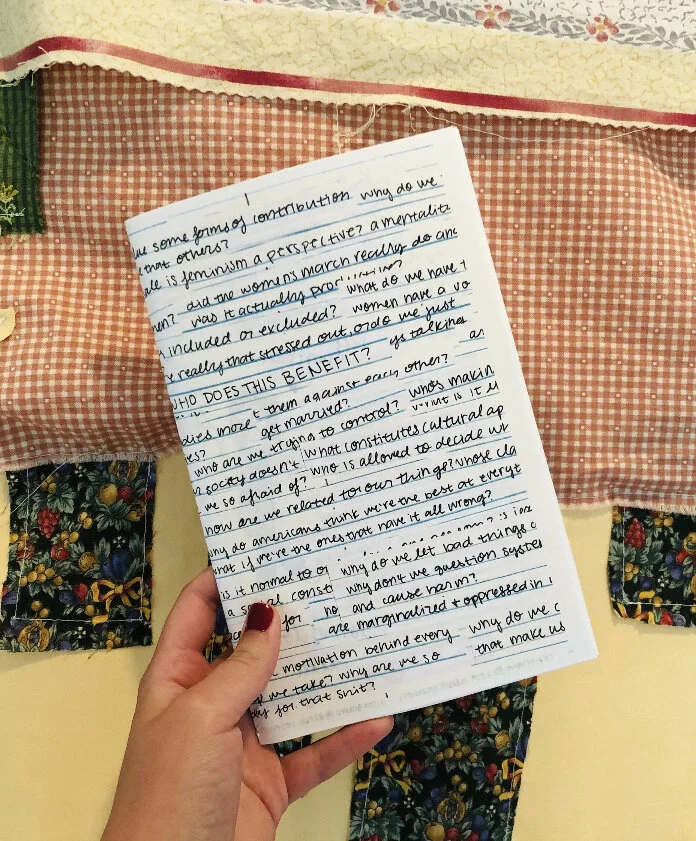 some forms of contribution why do we
that others?
is feminism a perspective? a mentalit
did the women's march really do anc
was it actually what do we have t
included or excluded? women have a vo
really that stressed out, or do we just
WHO DOES THIS BENEFIT? talking
more t them against each other? as
get married? who's makin
who are we trying to control? what is it
society doesn't what constitutes cultural ap
we so afraid of? who is allowed to decide wh
how are we related to our things? whose cla
why do americans think we're the best at everyt
what if we're the ones that have it all wrong?
is it normal to why do we let bad things
a social const why don't we question syste
for ho and cause harm?
are marginalized + oppressed in
motivation behind every why do we c
we take? why are we so that make us
for that shit?